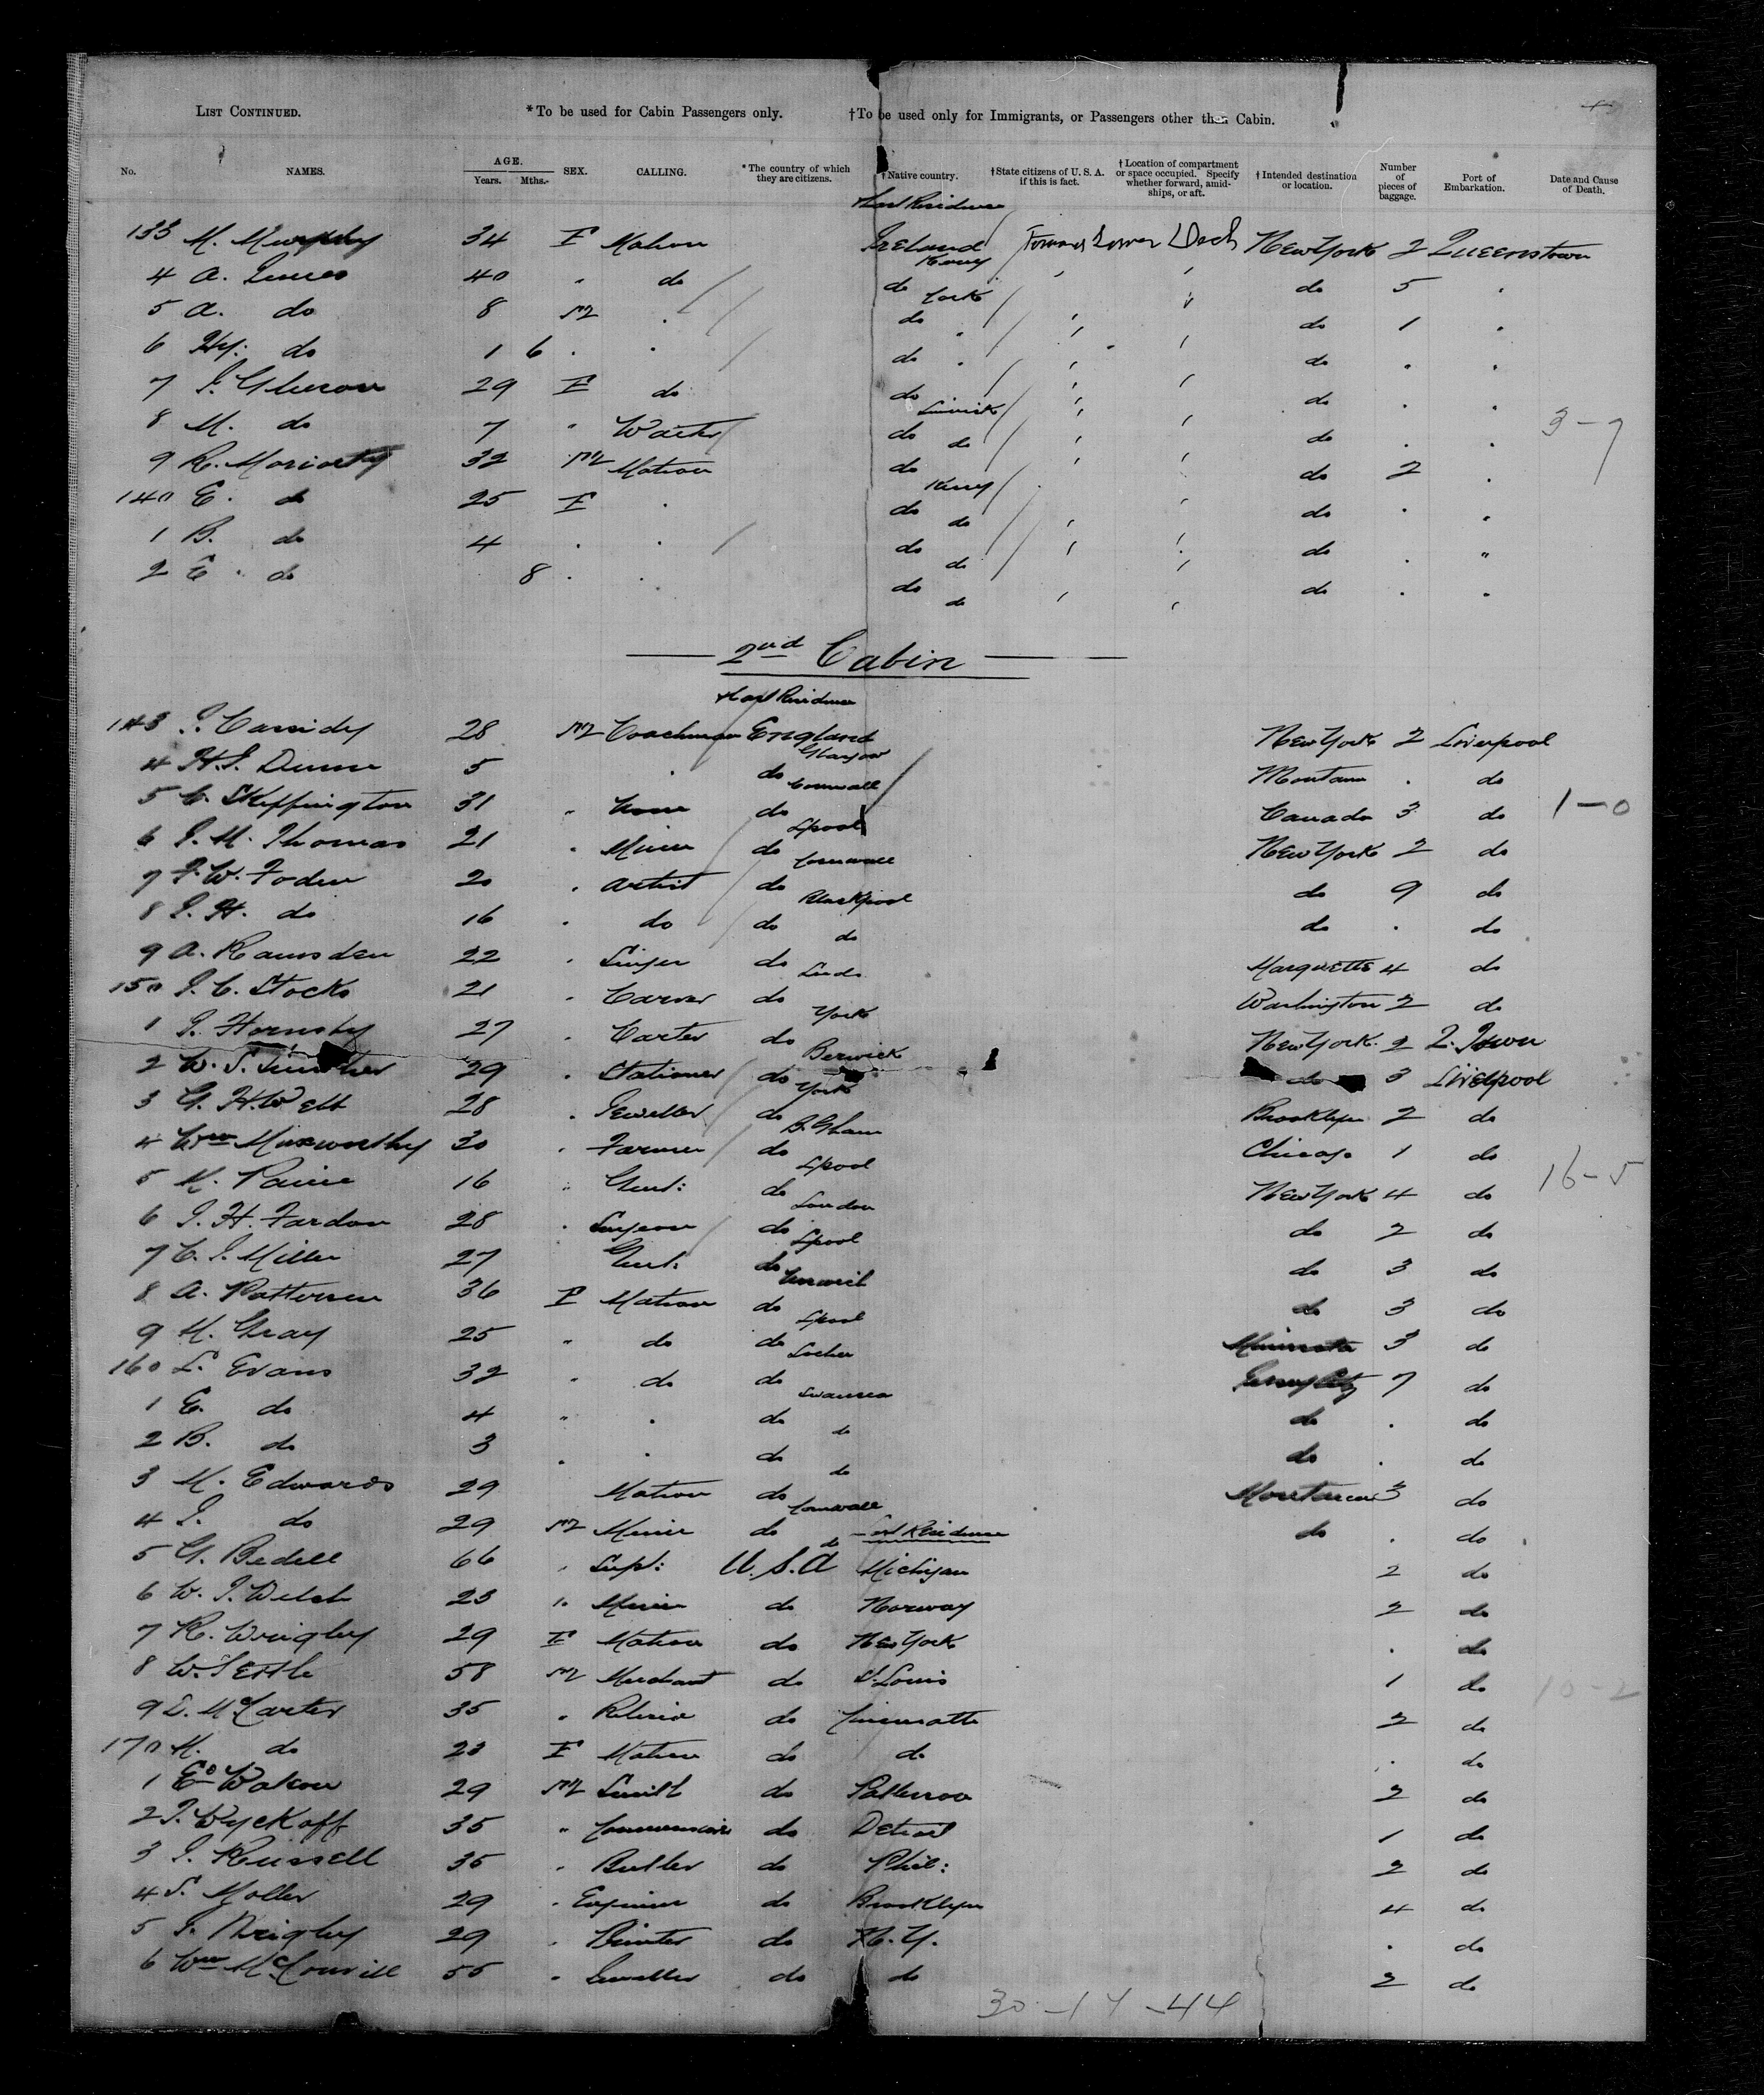 LIST CONTINUED. *To be used for Cabin Passengers only. †To be used only for Immigrants, or Passengers other than Cabin.
No. NAMES. AGE. Years. Mths. SEX. CALLING. *The country of which they are citizens. †Native country. †State citizens of U. S. A. if this is fact. †Location of compartment or space occupied. Specify whether forward, amidships, or aft. †Intended destination or location. Number of pieces of baggage. Port of Embarkation. Date and Cause of Death.
Last Residence
133 M. Murphy 34 F Matron Ireland Kerry Forward Lower Deck New York 2 Queenstown
4 A. 40 " do do Cork do 5 "
5 A. do 8 M " do " do 1 "
6 Hy: do 1 6 " " do " do " "
7 29 F do do Limerick do " "
8 M. do 7 " do do do " "
9 R. Moriarty 32 M Matron do Kerry do 2 "
140 E. do 25 F " do do do " "
1 B. do 4 " " do do do " "
2 E. do 8 " " do do do " "
3 - 7
2nd Cabin
Last Residence
143 J. Cassidy 28 M Coachman England Glasgow New York 2 Liverpool
4 H.J. Dunn 5 " do Cornwall Montana " do
5 C. Skeffington 31 " None do Lpool Canada 3 do 1-0
6 J. M. Thomas 21 " Miner do Cornwall New York 2 do
7 F. W. Foden 20 " Artist do Blackpool do 9 do
8 J. H. do 16 " do do do do " do
9 A. Ramsden 22 " do Leeds Marquette 4 do
150 J. C. Stocks 21 " Carver do York Washington 2 do
1 J. Hornsby 27 " Carter do Berwick New York 2 Q. Town
2 W. S. 29 " Stationer do York do 3 Liverpool
3 G. H. Webb 28 " Jeweller do B.Gham Brooklyn 2 do
4 Wm Muxworthy 30 " Farmer do Lpool Chicago 1 do
5 M. Paine 16 " Gent: do London New York 4 do 16-5
6 J. H. Fardon 28 " Surgeon do Lpool do 2 do
7 C. J. Miller 27 Gent: do do 3 do
8 A. Patterson 36 F Matron do Lpool do 3 do
9 M. Gray 25 " do do Minnesota 3 do
160 L. Evans 32 " do do Swansea Jersey City 7 do
1 E. do 4 " " do do do " do
2 B. do 3 " " do do do " do
3 M. Edwards 29 Matron do Cornwall Montana 3 do
4 J. do 29 M Miner do do Last Residence do " do
5 G. Bedell 66 " Supt: U.S.A Michigan 2 do
6 W. J. Welch 23 " Miner do Norway 2 do
7 R. Wrigley 29 F Matron do New York " do
8 W. Settle 58 M Merchant do St. Louis 1 do
9 D. McCarter 35 " do 2 do 10-2
170 M. do 23 F Matron do do " do
1 Ed Watson 29 M Smith do Patterson 2 do
2 J. Wyckoff 35 " do Detroit 1 do
3 J. Russell 35 " Butler do Phil: 2 do
4 S. Moller 29 " Engineer do Brooklyn 4 do
5 J. Wrigley 29 " Printer do N.Y. " do
6 Wm McConvill 55 " Jeweller do do 2 do
30 - 14 - 44